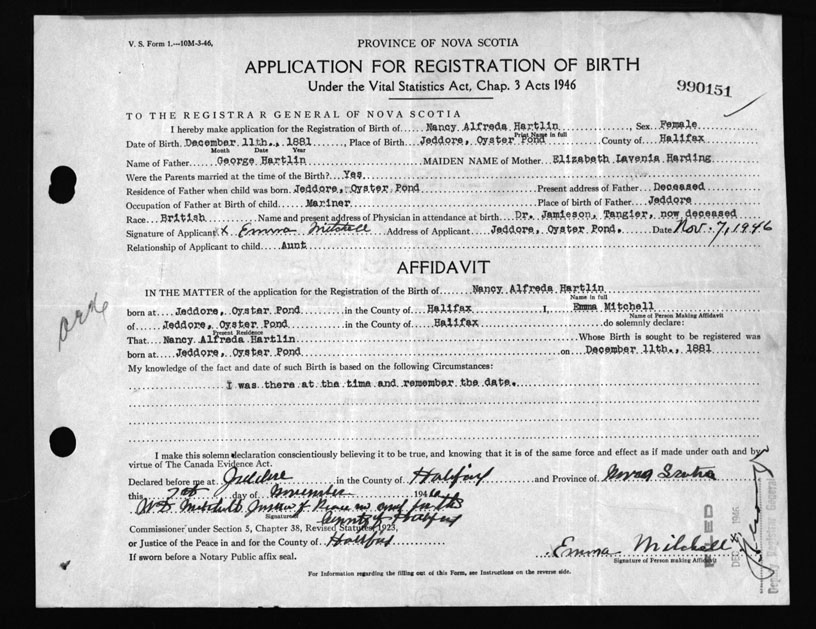 V. S. Form 1.—10M-3-46,
PROVINCE OF NOVA SCOTIA
APPLICATION FOR REGISTRATION OF BIRTH
Under the Vital Statistics Act, Chap. 3 Acts 1946
990151
TO THE REGISTRAR GENERAL OF NOVA SCOTIA
I hereby make application for the Registration of Birth of Nancy Alfreda Hartlin, Sex Female
Print Name in full
Date of Birth December 11th., 1881, Place of Birth Jeddore, Oyster Pond County of Halifax
Month Date Year
Name of Father George Hartlin MAIDEN NAME of Mother Elizabeth Lavenia Harding
Were the Parents married at the time of the Birth? Yes
Residence of Father when child was born Jeddore, Oyster Pond Present address of Father Deceased
Occupation of Father at Birth of child Mariner Place of birth of Father Jeddore
Race British Name and present address of Physician in attendance at birth Dr. Jamieson, Tangier, now deceased
Signature of Applicant X Emma Mitchell Address of Applicant Jeddore, Oyster Pond. Date Nov. 7, 1946
Relationship of Applicant to child Aunt
AFFIDAVIT
IN THE MATTER of the application for the Registration of the Birth of Nancy Alfreda Hartlin
Name in full
born at Jeddore, Oystar Pond in the County of Halifax I, Emma Mitchell
Name of Person Making Affidavit
of Jeddore, Oyster Pond in the County of Halifax do solemnly declare:
Present Residence
That Nancy Alfreda Hartlin Whose Birth is sought to be registered was
born at Jeddore, Oyster Pond on December 11th., 1881
My knowledge of the fact and date of such Birth is based on the following Circumstances:
I was there at the time and remember the date.
I make this solemn declaration conscientiously believing it to be true, and knowing that it is of the same force and effect as if made under oath and by
virtue of The Canada Evidence Act.
Declared before me at Jeddore in the County of Halifax and Province of Nova Scotia
this 7th day of November 1946
W.D. Mitchell Justice of Peace in and for the
Signature
County of Halifax
Commissioner under Section 5, Chapter 38, Revised Statutes, 1923,
or Justice of the Peace in and for the County of Halifax
If sworn before a Notary Public affix seal.
Emma Mitchell
Signature of Person making Affidavit
For Information regarding the filling out of this Form, see Instructions on the reverse side.
FILED
DEC 1946
Deputy Registrar General